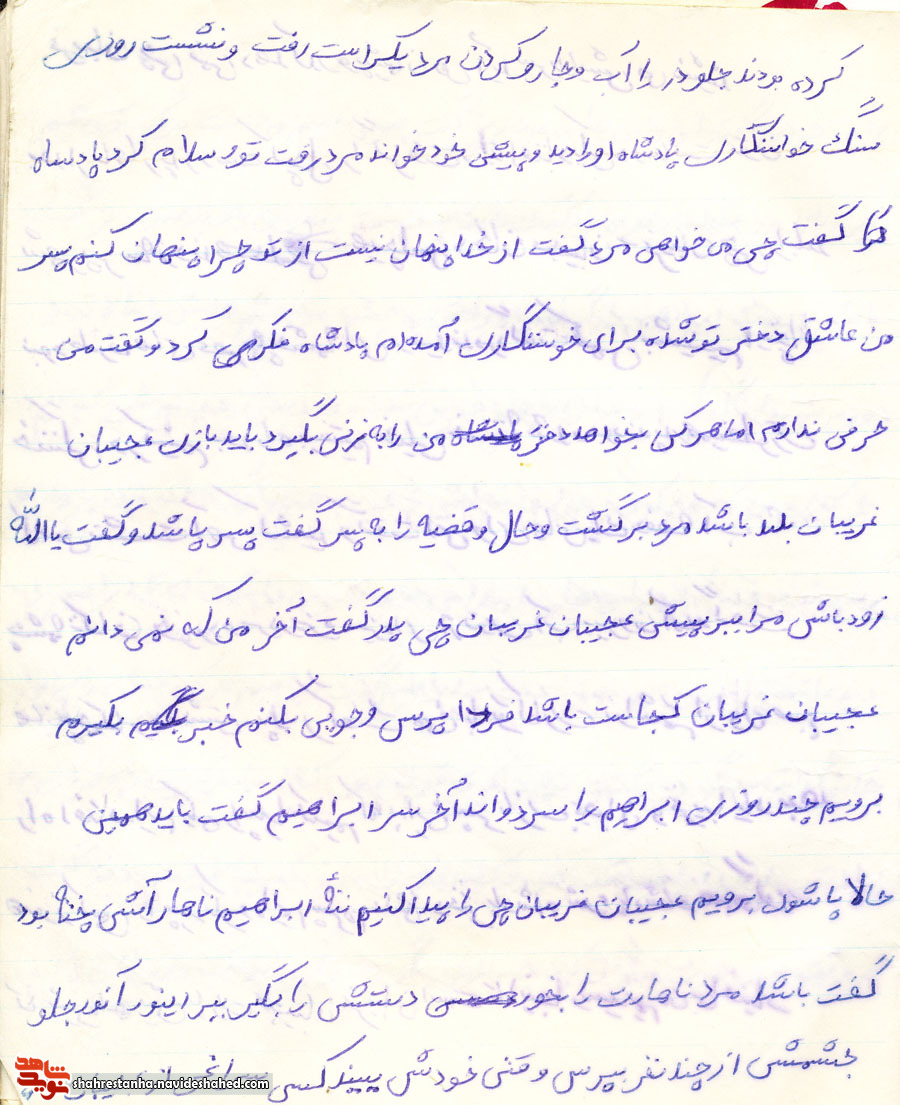 کرده بودند جلو در را آب و جارو کردن مرد یکراست رفت و نشست روی
سنگ خواستگاری پادشاه او را دید و پیش خود خواند مرد رفت تو و سلام کرد پادشاه
گفت چی می خواهی مرد گفت از خدا پنهان نیست از تو چرا پنهان کنم پسر
من عاشق دختر تو شده برای خوستگاری آمده ام پادشاه فکری کرد و گفت من
حرفی ندارم اما هرکس بخواهد دختر من را به زنی بگیرد باید بازی عجیبان
غریبان بلد باشد مرد برگشت و حال و قضیه را به پسر گفت پسر پا شد و گفت یاالله
زود باش مرا ببر پیش عجیبان غریبان چی پدر گفت آخر من که نمی دانم
عجیبان غریبان کجاست باشد فردا پرس و جویی بکنم خبر بگیرم
برویم چند روزی ابراهیم را سر دواند آخر سر ابراهیم گفت باید همین
حالا پاشو برویم عجیبان غریبان چی را پیدا کنیم ننهٔ ابراهیم ناهار آش پخته بود
گفت باشد مرد ناهارت را بخور دستش را بگیر ببر اینور آنور جلو
چشمش از چند نفر بپرس وقتی خودش ببیند کسی
شاهد نوید
shahrestanha.navideshahed.com